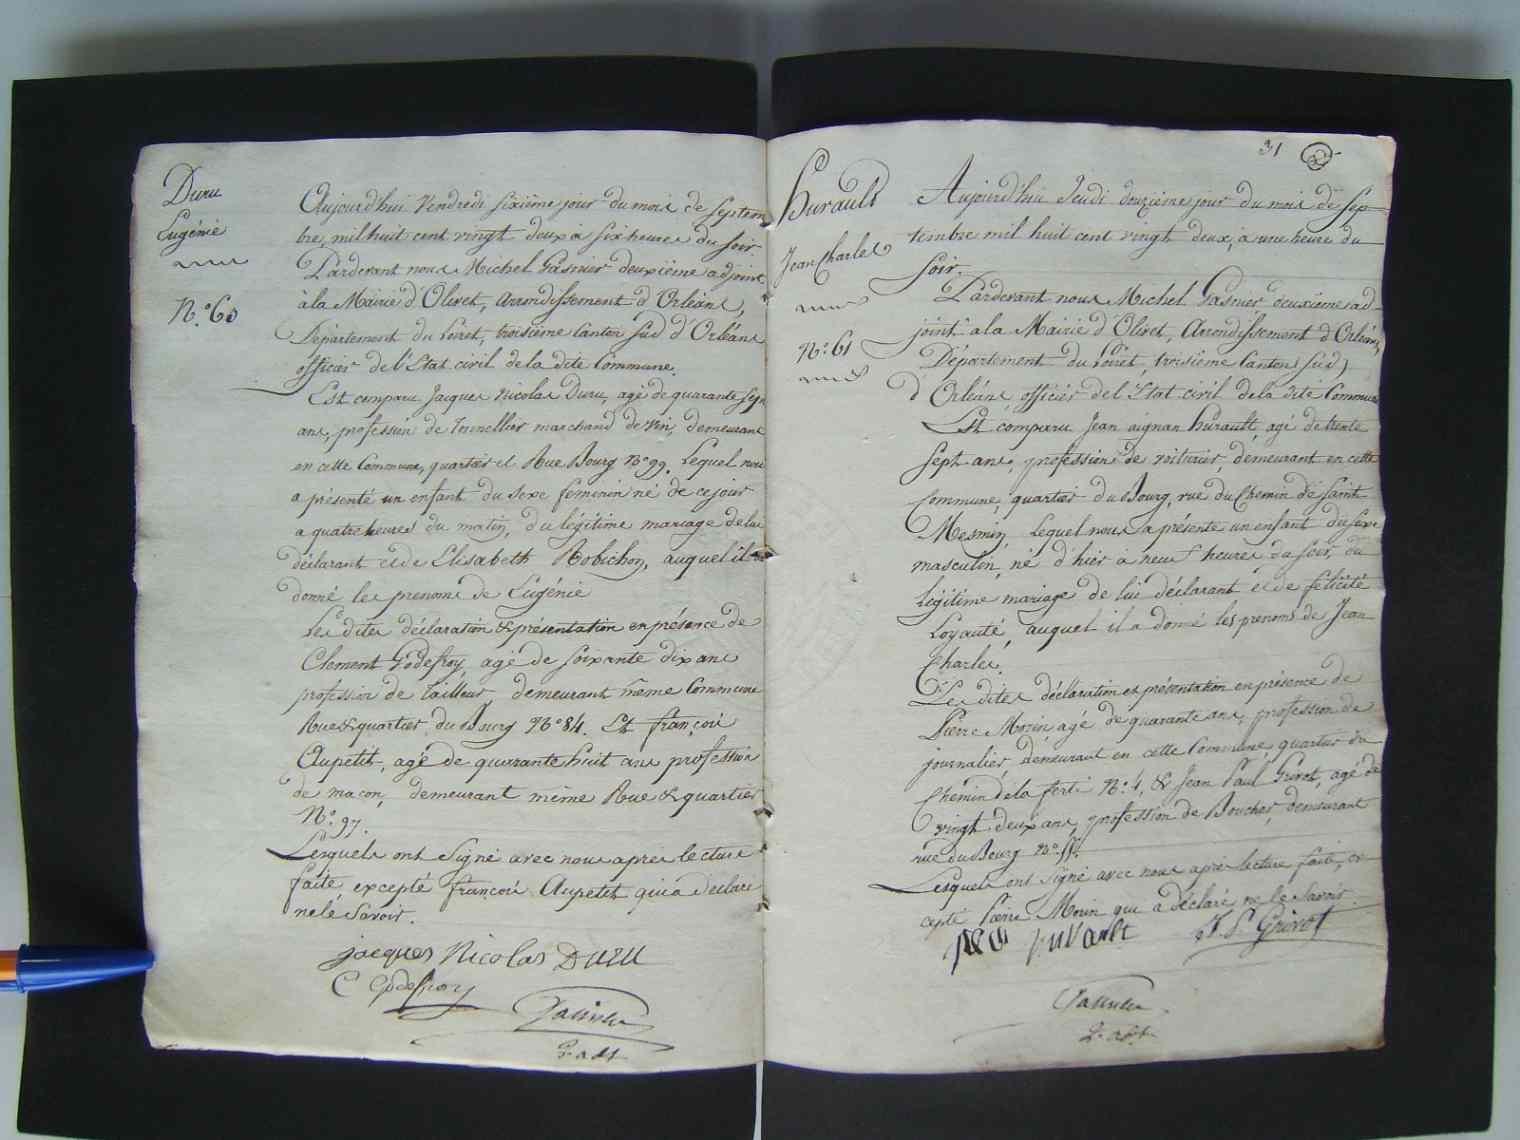 Duru
Eugénie
N.° 60
Aujourd'hui Vendredi sixième jour du mois de Septem
bre, mil huit cent vingt deux à six heures du soir.
Pardevant nous Michel Gasnier deuxième adjoint
à la Mairie d'Olivet, Arrondissement d'Orléans,
Département du Loiret, troisième Canton sud d'Orléans
officier de l'Etat civil de la dite Commune.
Est comparu Jacques Nicolas Duru, agé de quarante sept
ans, profession de Tonnellier marchand de vin, demeurant
en cette Commune, quartier et Rue Bourg N.° 99. Lequel nous
a présenté un enfant du sexe feminin né de ce jour
a quatre heures du matin, du légitime mariage de lui
déclarant et de Elisabeth Robichon, auquel il a
donné les prenoms de Eugénie
Les dites déclaration & présentation en présence de
Clement Godefroy, agé de soixante dix ans
profession de Tailleur, demeurant même Commune
Rue & quartier du Bourg N° 84. Et françois
Aupetit, agé de quarante huit ans profession
de maçon, demeurant même Rue & quartier
N.° 97.
Lesquels ont signé avec nous apres lecture
faite, excepté françois Aupetit qui a déclaré
ne le savoir.
jacques Nicolas DURU
C Godefroy
Gasnier
2. adt
31
Hurault
Jean Charles
N.° 61
Aujourd'hui Jeudi douzième jour du mois de Sep
tembre mil huit cent vingt deux, à une heure du
soir.
Pardevant nous Michel Gasnier, deuxième ad-
joint à la Mairie d'Olivet, Arrondissement d'Orléans,
Département du Loiret, troisième Canton (sud)
d'Orléans officier de l'Etat civil de la dite Commune
Est comparu Jean aignan hurault, agé de trente
sept ans, profession de voiturier, demeurant en cette
Commune, quartier du Bourg, rue du Chemin de Saint
Mesmin, Lequel nous a présenté un enfant du sexe
masculin, né d'hier à neuf heures du soir, du
légitime mariage de lui déclarant et de félicité
Loyauté, auquel il a donné les prenoms de Jean
Charles.
Les dites déclaration et présentation en présence de
Pierre Morin agé de quarante ans, profession de
journalier, demeurant en cette Commune quartier du
Chemin de la ferté N.° 4, & Jean Paul Grivot, agé de
vingt deux ans, profession de Boucher, demeurant
rue du Bourg N.°
Lesquels ont signé avec nous après lecture faite, ex-
cepté Pierre Morin qui a déclaré ne le savoir.
huRault
J. P. Grivot
Gasnier
2. adt